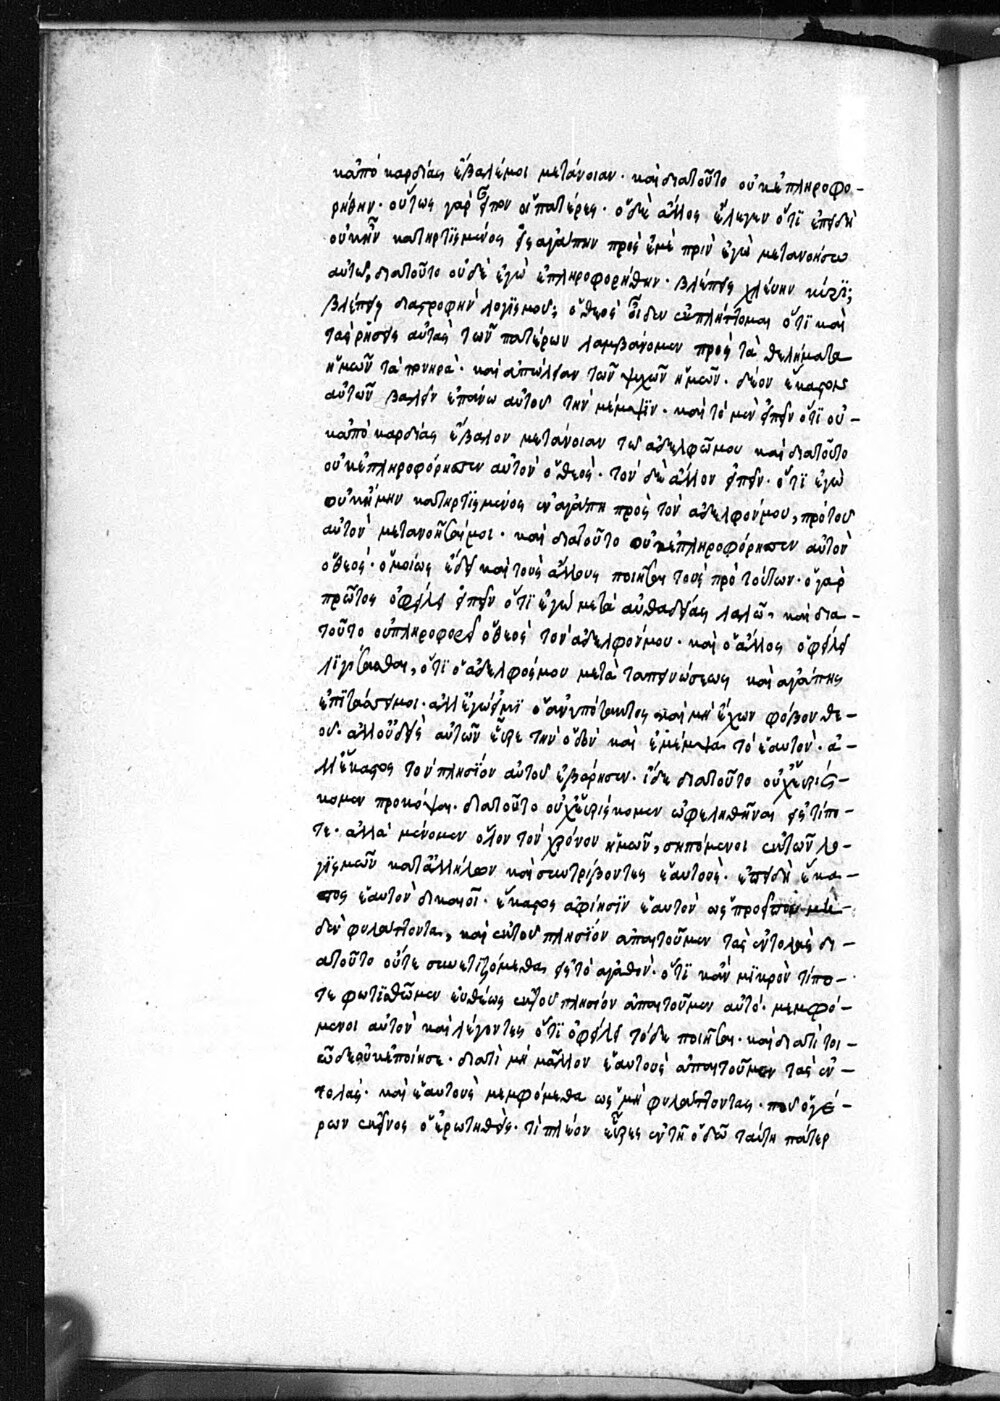 κἀπὸ καρδίας ἔβαλέ μοι μετάνοιαν· καὶ διατοῦτο οὐκ ἐπληροφο-
ρήθην· οὕτως γὰρ εἶπον οἱ πατέρες· ὁ δὲ ἄλλος ἔλεγεν ὅτι ἐπειδὴ
οὐκ ἦν κατηρτισμένος εἰς ἀγάπην πρὸς ἐμὲ πρὶν ἐγὼ μετανοήσω
αὐτῷ, διατοῦτο οὐδὲ ἐγὼ ἐπληροφορήθην· βλέπεις χλεύην
βλέπεις διαστροφὴν λογισμοῦ; ὁ θεὸς οἶδεν ἐκπλήττομαι ὅτι καὶ
τὰς ῥήσεις αὐτὰς τῶν πατέρων λαμβάνομεν πρὸς τὰ θελήματα
ἡμῶν τὰ πονηρά· καὶ ἀπώλειαν τῶν ψυχῶν ἡμῶν· δέον ἕκαστον
αὐτῶν βαλεῖν ἐπάνω αὐτοῦ τὴν μέμψιν· καὶ τὸ μὲν εἰπεῖν ὅτι οὐ-
κἀπὸ καρδίας ἔβαλον μετάνοιαν τῷ ἀδελφῷ μου καὶ διατοῦτο
οὐκ ἐπληροφόρησεν αὐτὸν ὁ θεός· τὸν δὲ ἄλλον εἰπεῖν· ὅτι ἐγὼ
οὐκ ἤμην κατηρτισμένος ἐν ἀγάπῃ πρὸς τὸν ἀδελφόν μου, πρὸ τοῦ
αὐτὸν μετανοῆσαί μοι· καὶ διατοῦτο οὐκ ἐπληροφόρησεν αὐτὸν
ὁ θεός· ὁμοίως ἔδει καὶ τοὺς ἄλλους ποιῆσαι τοὺς πρὸ τούτων· ὁ γὰρ
πρῶτος ὀφείλει εἰπεῖν ὅτι ἐγὼ μετὰ αὐθαδείας λαλῶ· καὶ δια-
τοῦτο οὐ πληροφορεῖ ὁ θεὸς τὸν ἀδελφόν μου· καὶ ὁ ἄλλος ὀφείλει
λογίζεσθαι, ὅτι ὁ ἀδελφός μου μετὰ ταπεινώσεως καὶ ἀγάπης
ἐπιτάσσει μοι· ἀλλ' ἐγώ εἰμι ὁ ἀνυπότακτος καὶ μὴ ἔχων φόβον θε-
οῦ· ἀλλ' οὐδεὶς αὐτῶν εὗρε τὴν ὁδὸν καὶ ἐμέμψατο ἑαυτόν· ἀ-
λλ' ἕκαστος τὸν πλησίον αὐτοῦ ἐβάρησεν· ἴδε διατοῦτο οὐχ εὑρίς-
κομεν προκόψαι· διατοῦτο οὐχ εὑρίσκομεν ὠφεληθῆναι εἰς τίπο-
τε· ἀλλὰ μένομεν ὅλον τὸν χρόνον ἡμῶν, σηπόμενοι ἐκ τῶν λο-
γισμῶν κατ' ἀλλήλων καὶ συντρίβοντες ἑαυτούς· ἐπειδὴ ἕκα-
στος ἑαυτὸν δικαιοῖ· ἕκαστος ἀφίησιν ἑαυτὸν ὡς προεῖπον μη-
δὲν φυλάττοντα, καὶ ἐκ τοῦ πλησίον ἀπαιτοῦμεν τὰς ἐντολὰς δι-
ατοῦτο οὔτε συνετιζόμεθα εἰς τὸ ἀγαθόν· ὅτι κἂν μικρὸν τίπο-
τε φωτισθῶμεν εὐθέως ἐκ τοῦ πλησίον ἀπαιτοῦμεν αὐτό· μεμφό-
μενοι αὐτὸν καὶ λέγοντες ὅτι ὀφείλει τόδε ποιῆσαι· καὶ διατί τοι-
ῶσδε οὐκ ἐποίησε· διατί μὴ μᾶλλον ἑαυτοὺς ἀπαιτοῦμεν τὰς ἐν-
τολάς· καὶ ἑαυτοὺς μεμφόμεθα ὡς μὴ φυλάττοντας· ποῦ ὁ γέ-
ρων ἐκεῖνος ὁ ἐρωτηθείς· τί πλέον εὗρες ἐν τῇ ὁδῷ ταύτῃ πάτερ